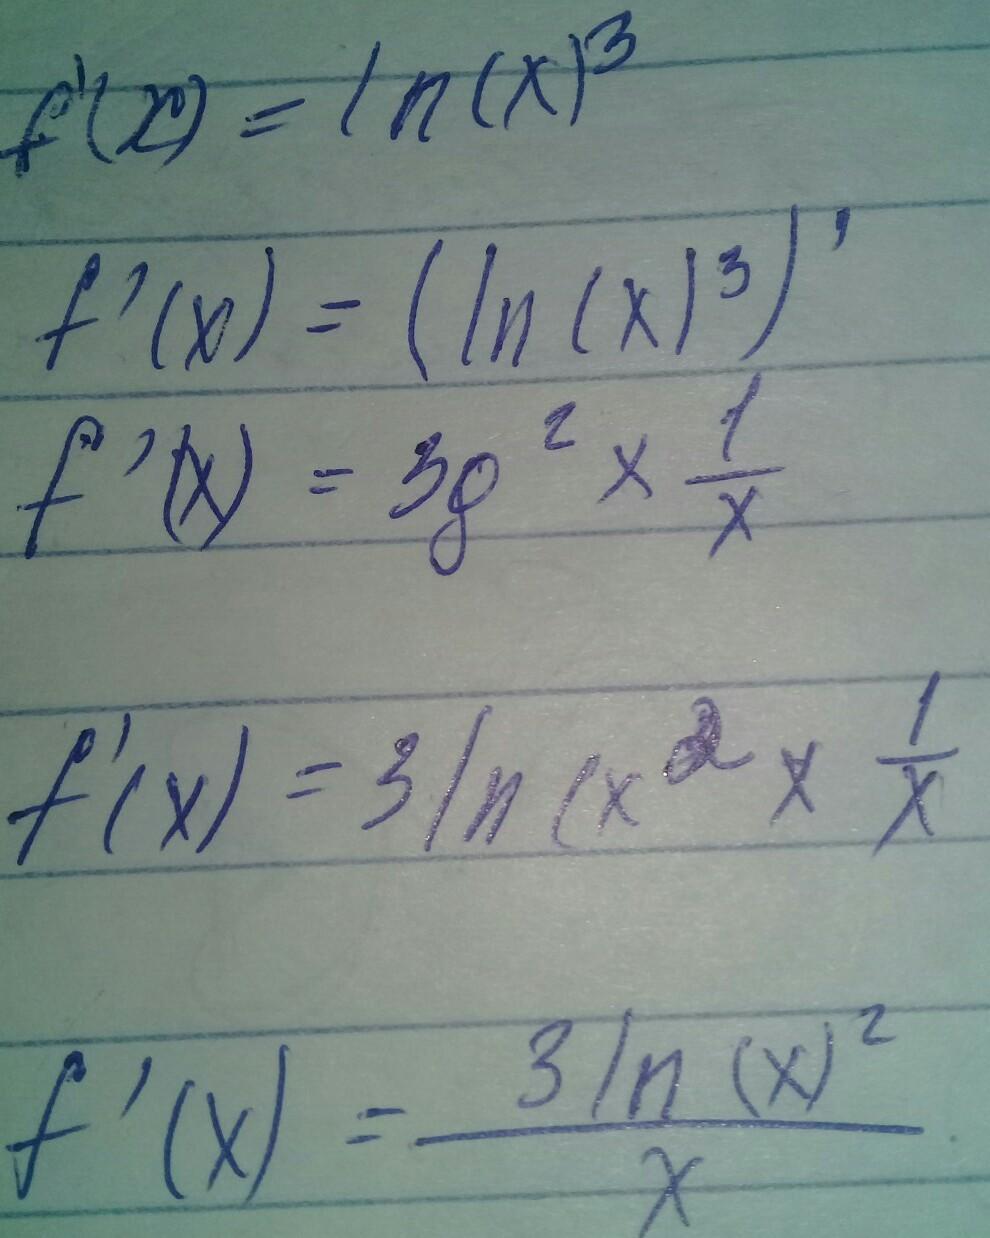 f'(x) = ln(x)³
f'(x) = (ln(x)³)'
f'(x) = 3g² × 1/x
f'(x) = 3ln(x² × 1/x
f'(x) = 3ln(x)²/x